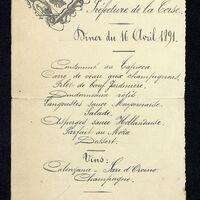 Préfecture de la Corse.
Dîner du 16 Avril 1891.
Consommé au Tapioca
Carré de veau aux champignons
Filet de bœuf Jardinière
Dindonneaux rôtis
Langoustes sauce Mayonnaise
Salade
Asperges sauce Hollandaise
Parfait au Moka
Dessert.
Vins:
Calenzana — Sari d'Orcino
Champagne.